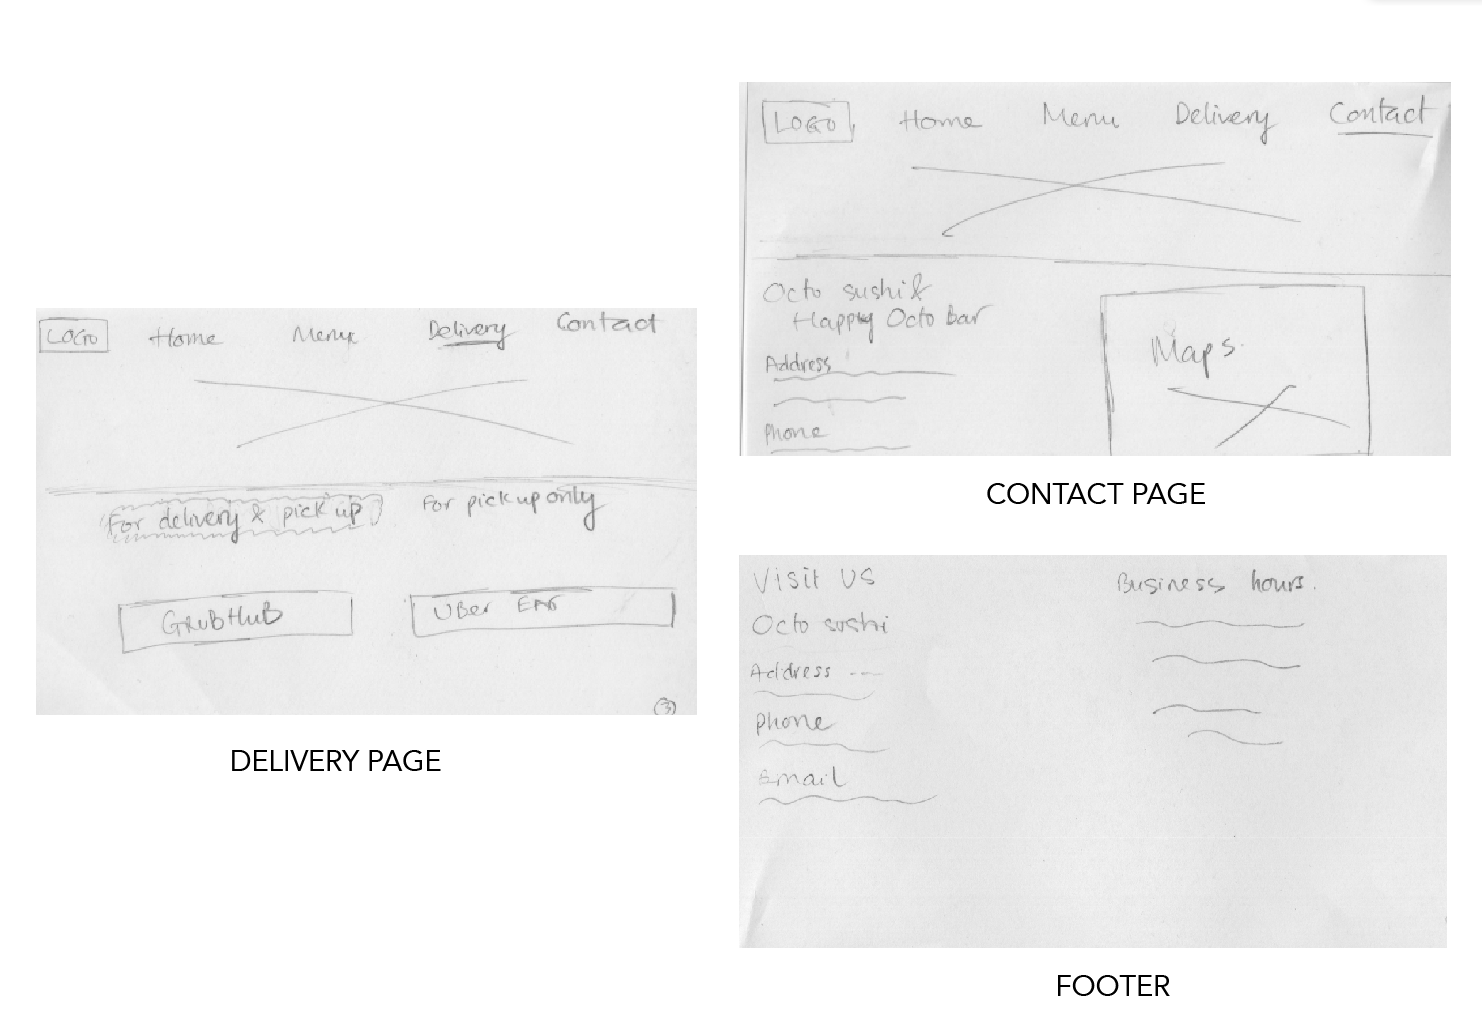 LOGO Home Menu Delivery Contact
For delivery & pick up For pick up only
GRUBHUB UBer EAT
3
DELIVERY PAGE
LOGO Home Menu Delivery Contact
Octo sushi &
Happy Octo bar
Address
Phone
Maps
CONTACT PAGE
Visit US
Octo sushi
Address --
Phone
Email
Business hours.
FOOTER